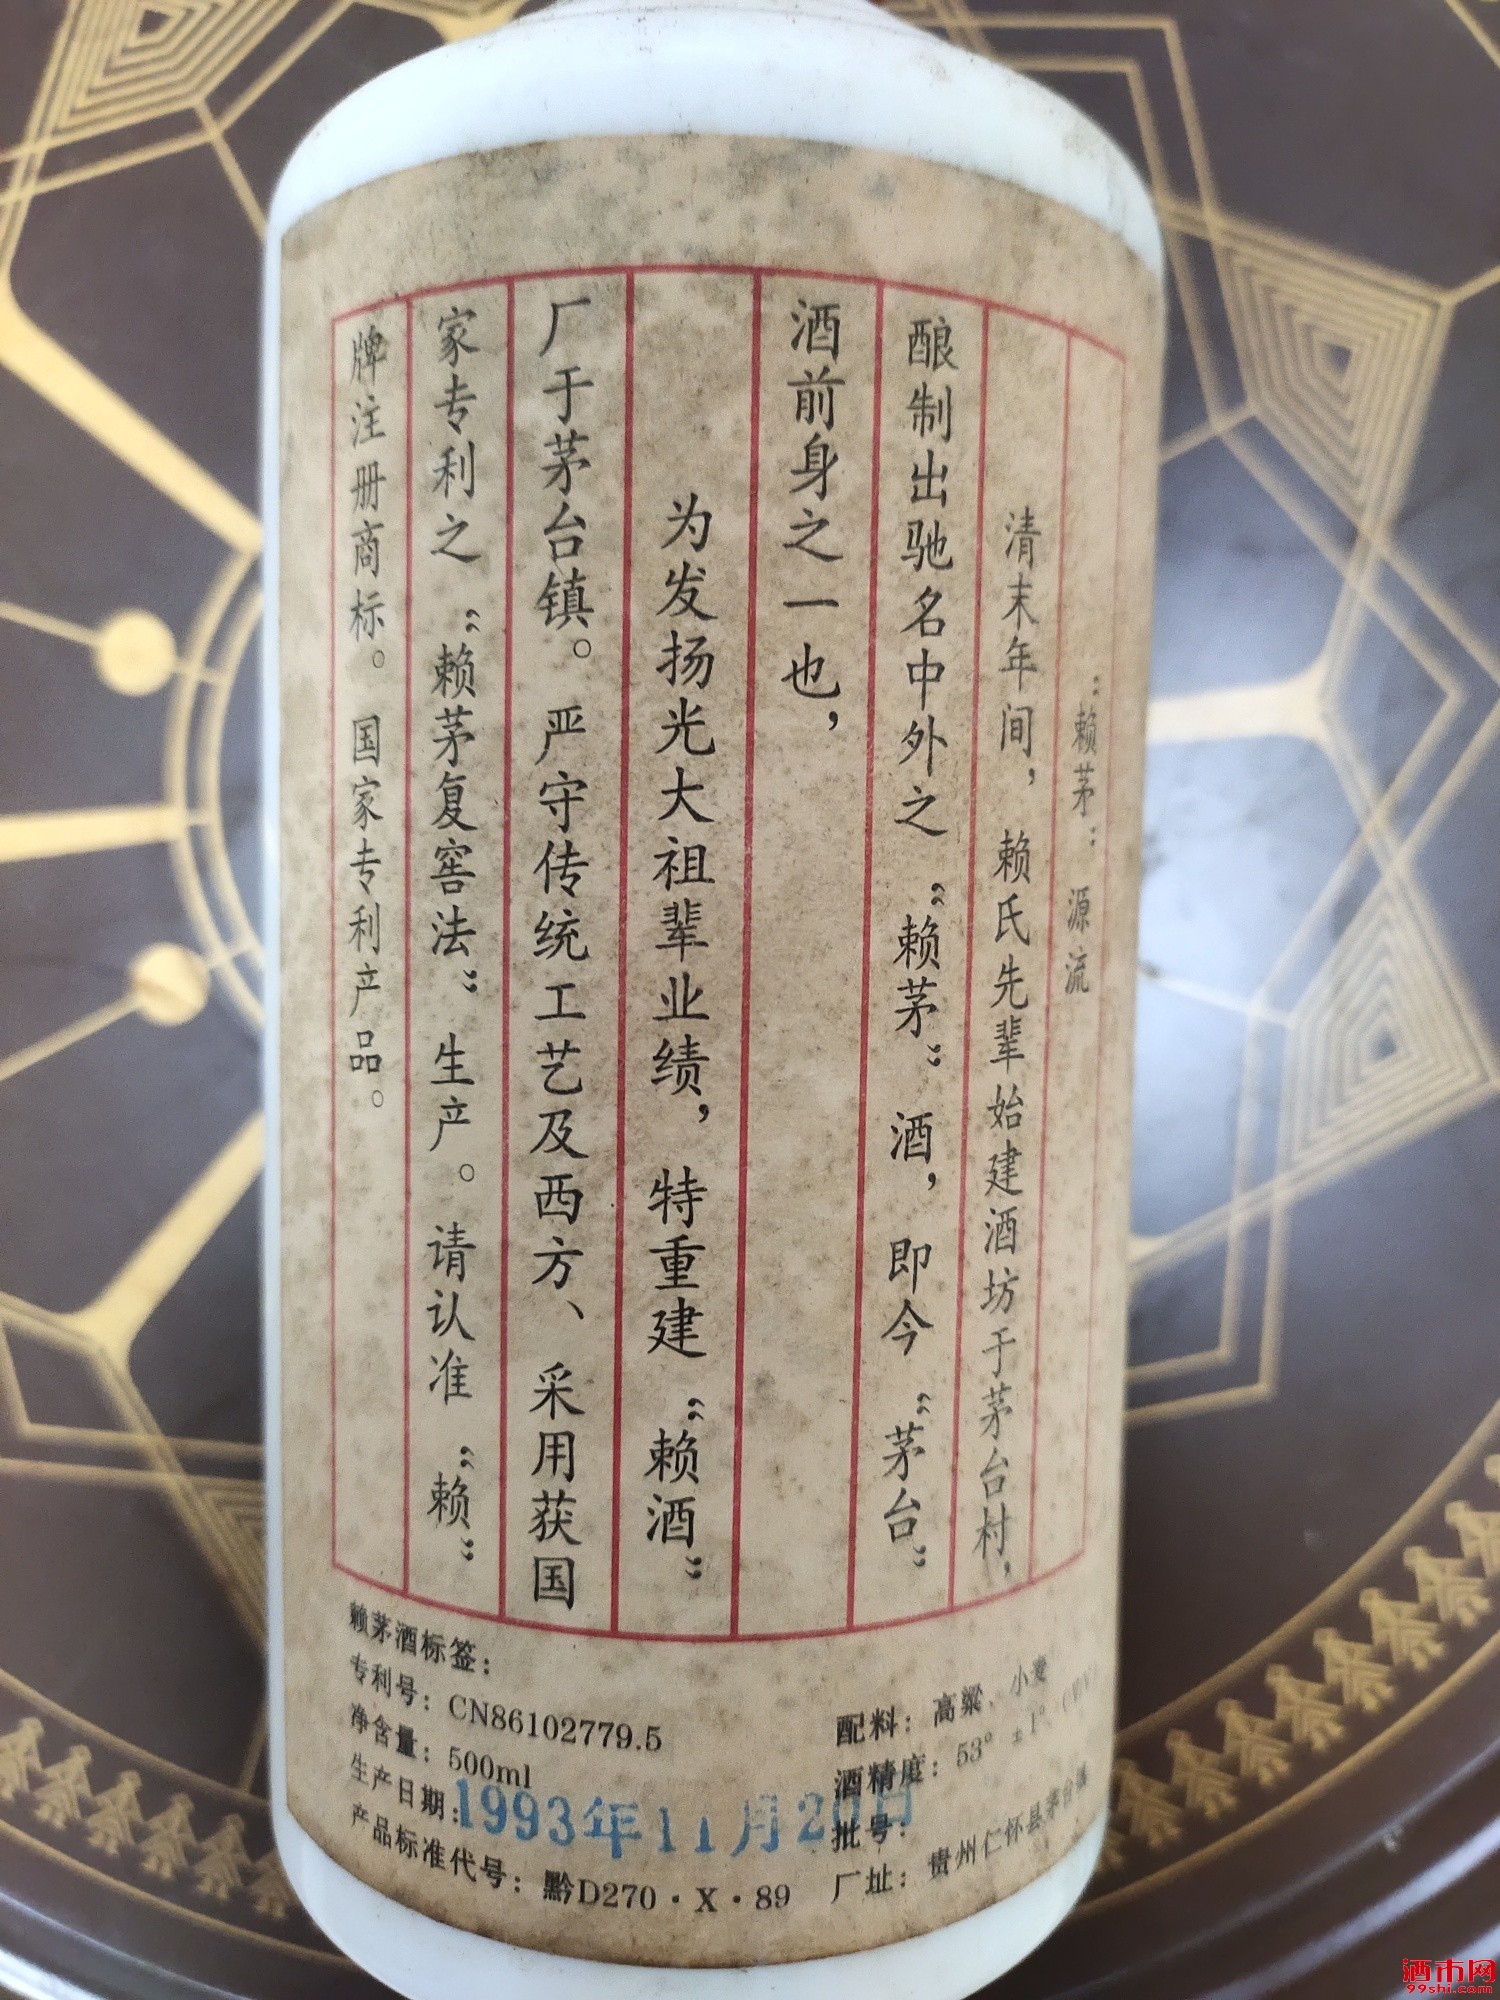 ：赖茅：源流
清末年间，赖氏先辈始建酒坊于茅台村，
酿制出驰名中外之“赖茅”酒，即今“茅台”
酒前身之一也，
为发扬光大祖辈业绩，特重建“赖酒”
厂于茅台镇。严守传统工艺及西方、采用获国
家专利之“赖茅复窖法”生产。请认准“赖”
牌注册商标。国家专利产品。
赖茅酒标签：
专利号：CN86102779.5
净含量：500ml
生产日期：1993年11月20日
产品标准代号：黔D270·X·89
配料：高粱、小麦
酒精度：53°±1°（V/V）
批号：
厂址：贵州仁怀县茅台镇
酒市网
99shi.com